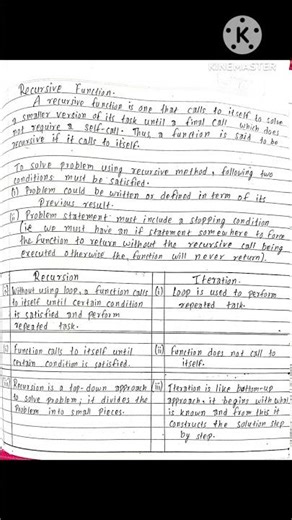 K
KINEMASTER
Recursive Function.
A recursive function is one that calls to itself to solve
a smaller version of its task until a final call which does
not require a self-call. Thus a function is said to be
recursive if it calls to itself.
To solve problem using recursive method, following two
conditions must be satisfied.
(i) Problem could be written or defined in term of its
previous result.
(ii) Problem statement must include a stopping condition
(ie we must have an if statement somewhere to force
the function to return without the recursive call being
executed otherwise the function will never return).
Recursion
(i) Without using loop, a function calls
to itself until certain condition
is satisfied and perform
repeated task.
(ii) Function calls to itself until
certain condition is satisfied.
(iii) Recursion is a top-down approach
to solve problem; it divides the
problem into small pieces.
Iteration
(i) Loop is used to perform
repeated task.
(ii) Function does not call to
itself.
(iii) Iteration is like bottom-up
approach, it begins with what
is known and from this it
constructs the solution step
by step.